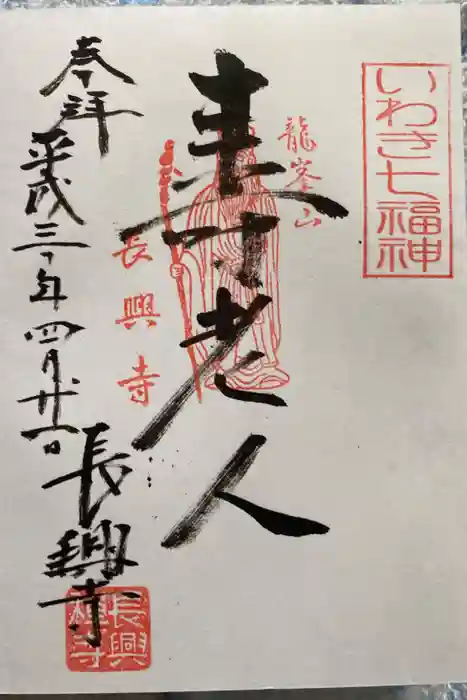 いわき七福神
龍峯山
壽老人
長興寺
奉拝
平成三十年四月廿一日
長興寺